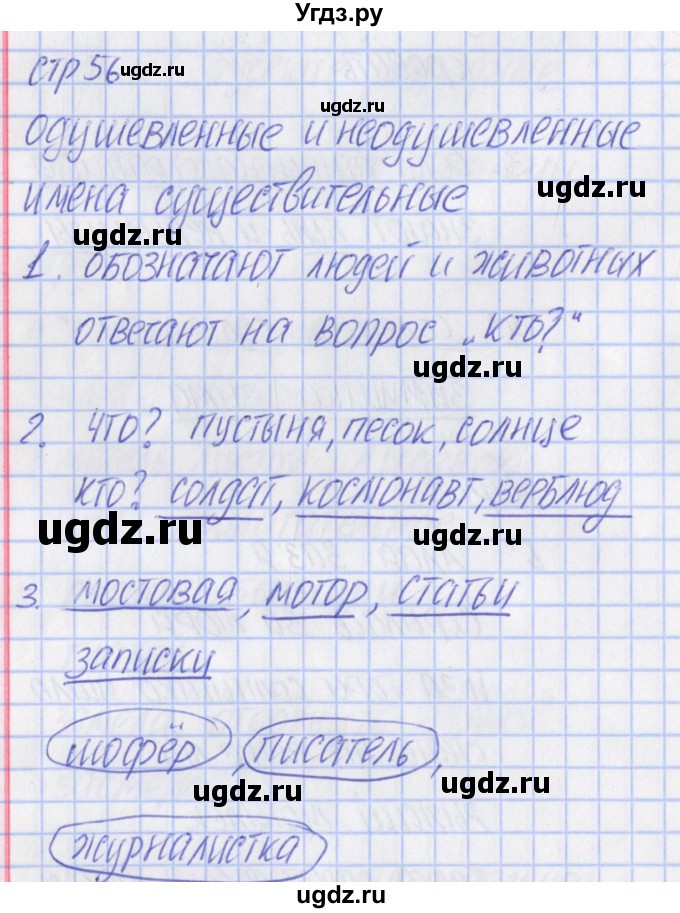 Угдз.ру
стр 56
ugdz.ru
ugdz.ru
одушевленные и неодушевленные
имена существительные
ugdz.ru
ugdz.ru
1. обозначают людей и животных
отвечают на вопрос „кто?“
ugdz.ru
2. что? пустыня, песок, солнце
кто? солдат, космонавт, верблюд
ugdz.ru
ugdz.ru
3. мостовая, мотор, статьи
записки
ugdz.ru
шофёр, писатель,
ugdz.ru
ugdz.ru
журналистка
ugdz.ru